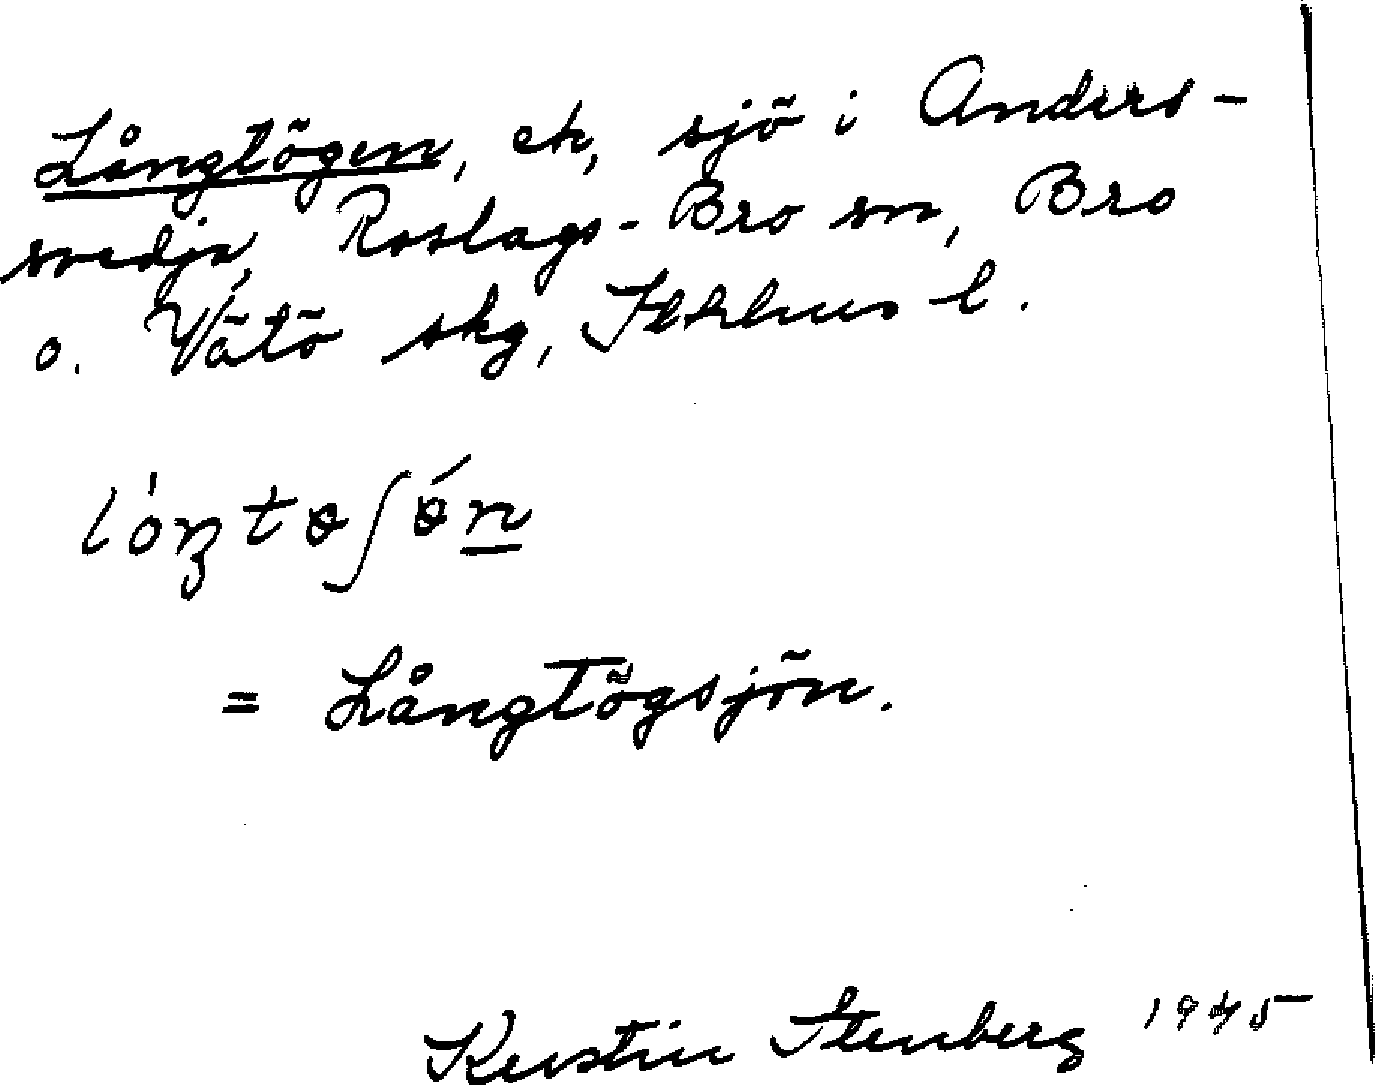 Långtögen, ek, sjö i Anders-
svedja, Roslags-Bro sn, Bro
o. Vätö skg, Sthlms l.
= Långtögsjön.
Kerstin Stenberg 1945